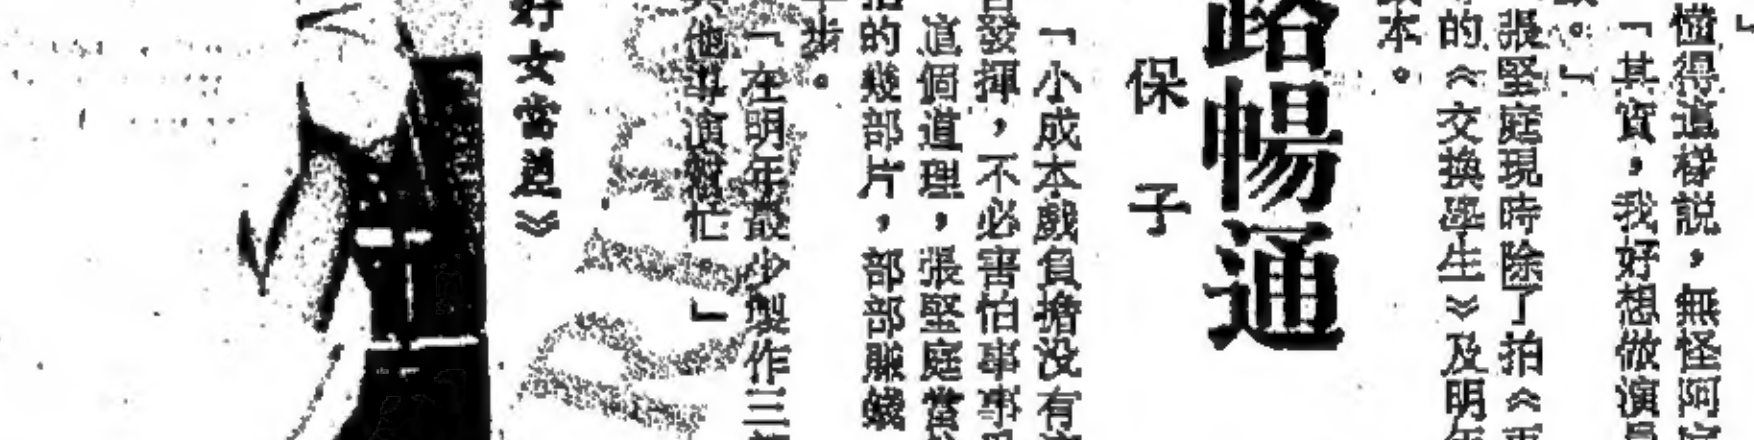 懂得這樣説，無怪阿
「其實，我好想做演
張堅庭現時除了拍《
的《交換學生》及明年
本。
路暢通
保子
「小成本戲負擔没有
發揮，不必害怕事事
這個道理，張堅庭當
的幾部片，部部賺錢
步。
「在明年最少製作三
他導演幫忙。」
好女當差》